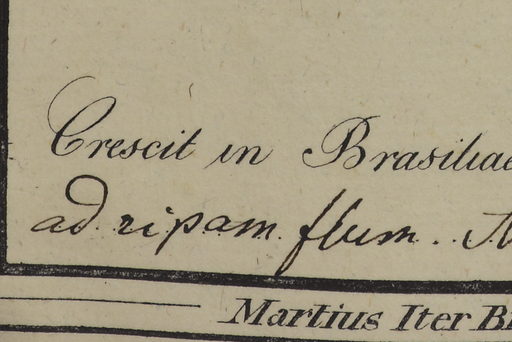 Crescit in Brasiliae
ad ripam flum.
Martius Iter B